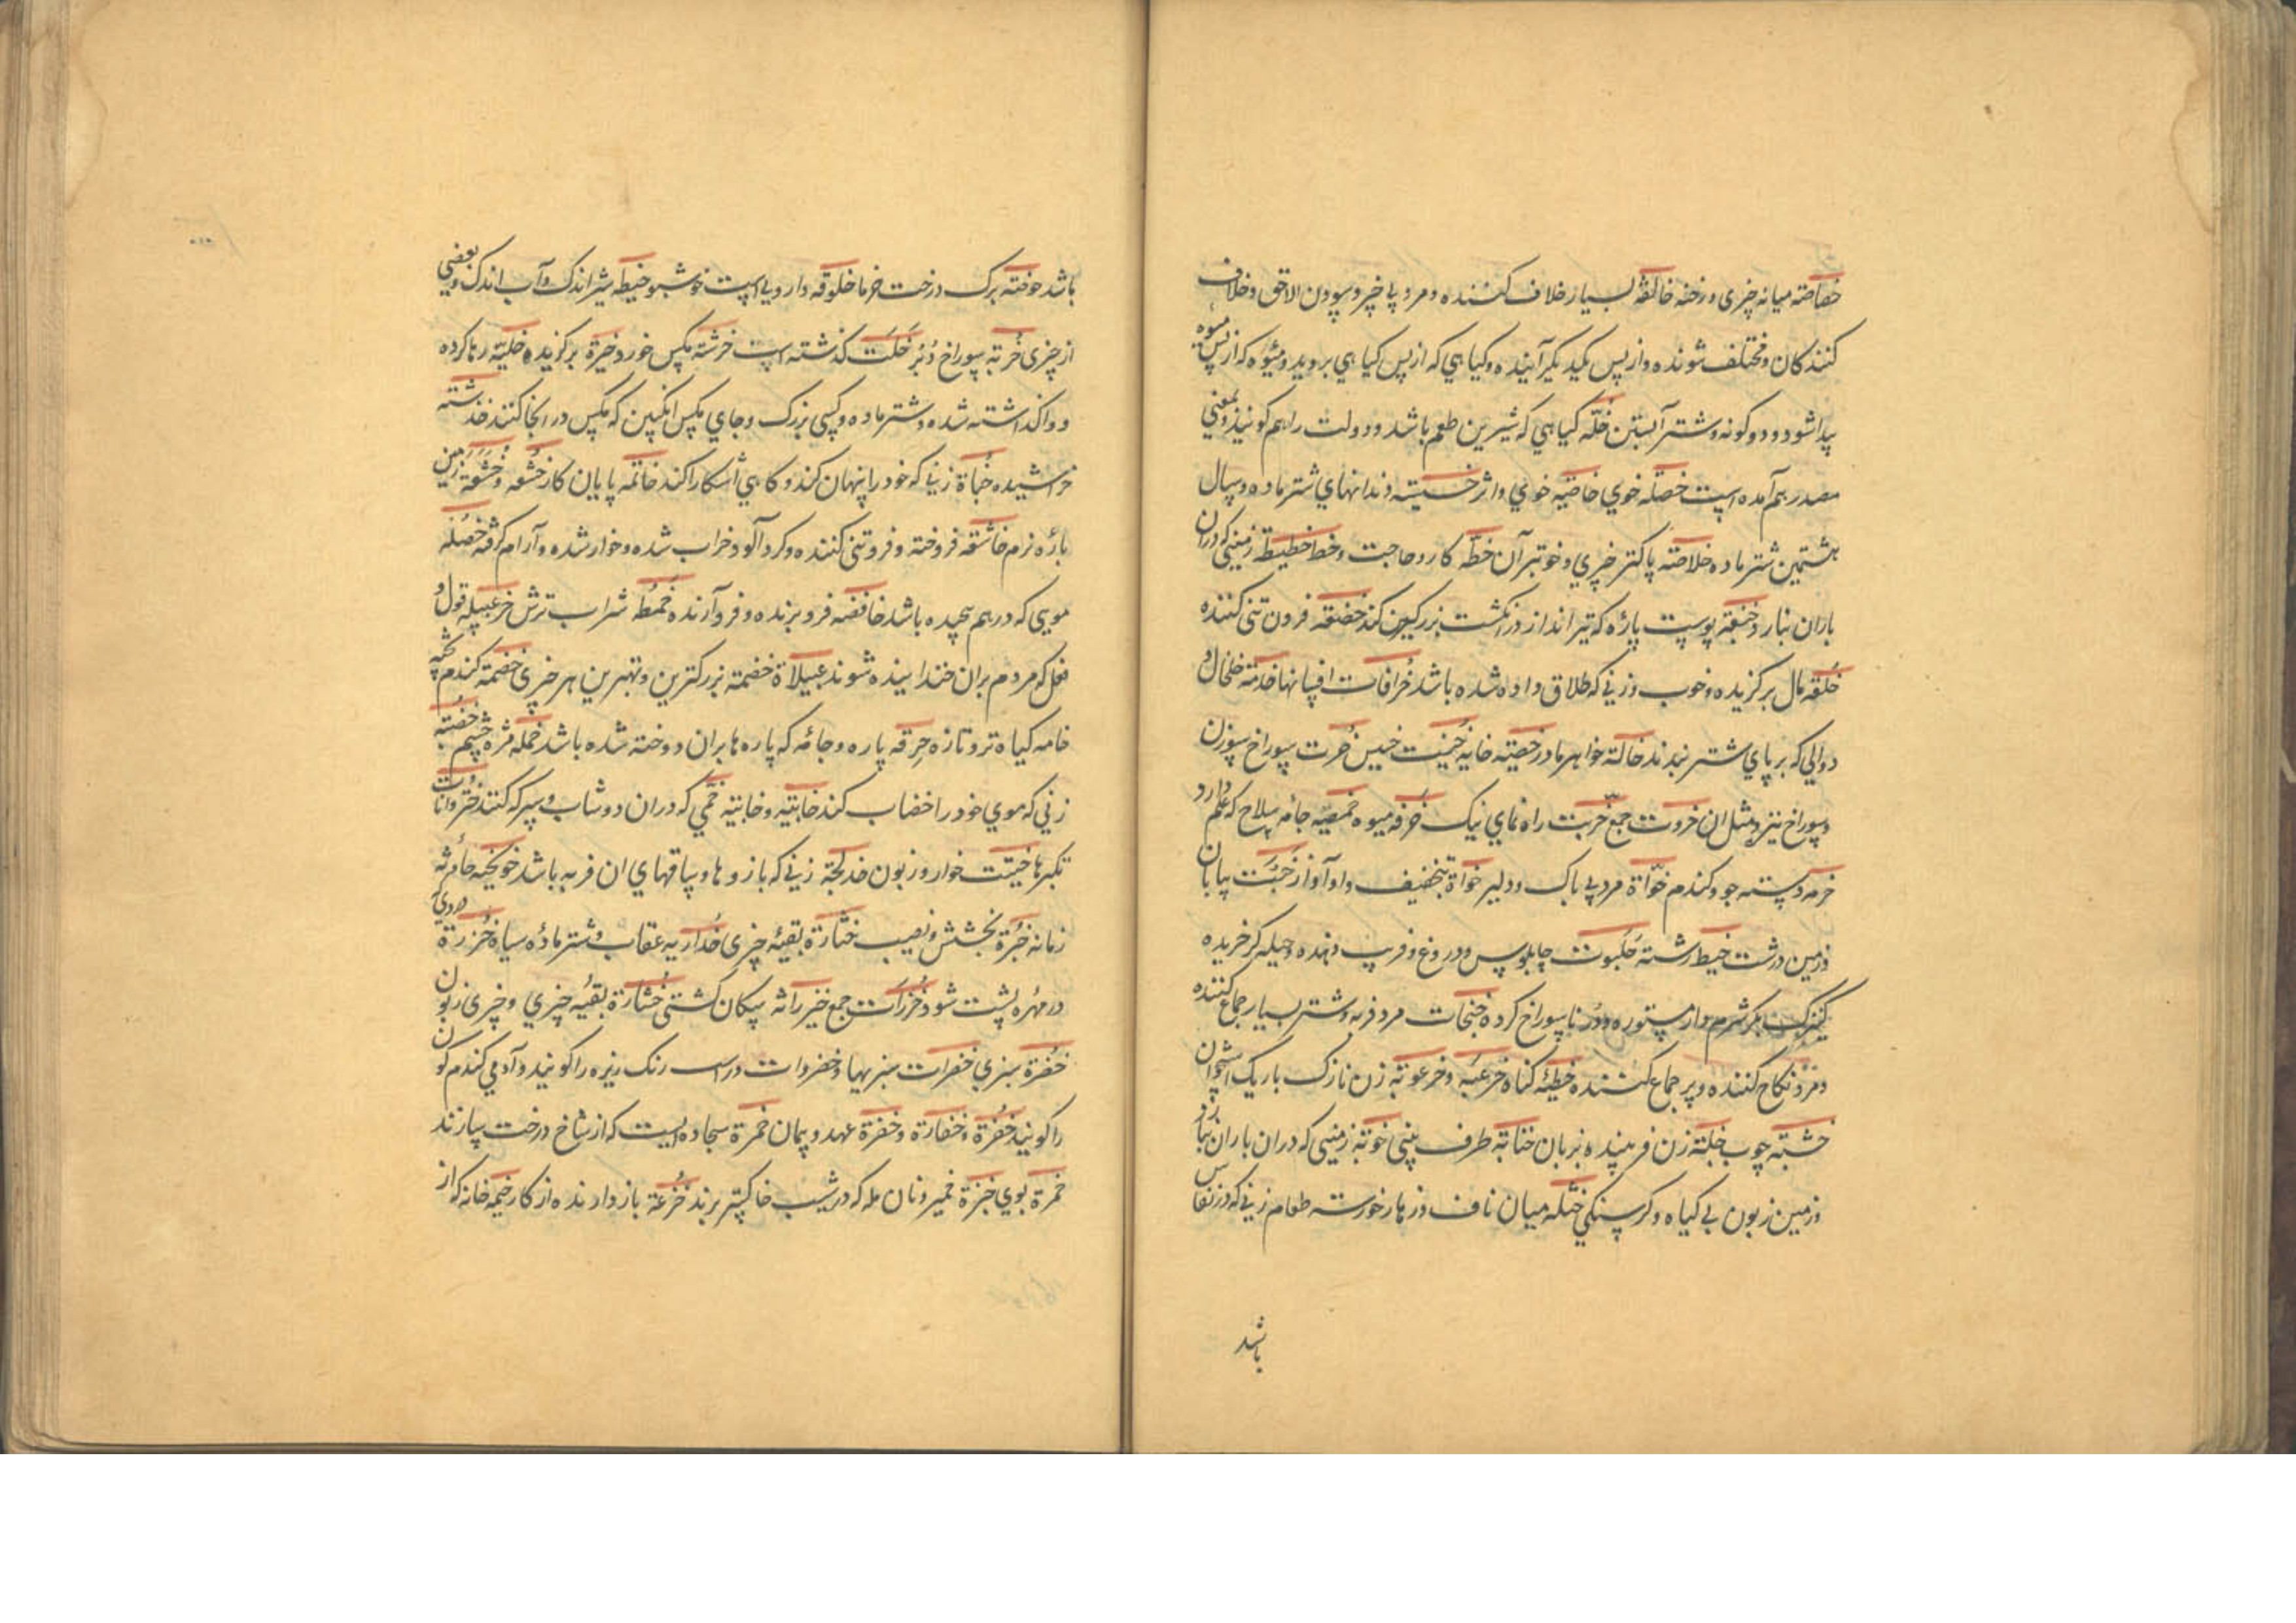 خصاصته میانه چیزی و رخنه خالفة بسیار خلاف کننده و مرد بی خیر و ستودن الاحق و خلاف
کنندکان و مختلف شونده و از پس یکدیکر آینده و کیاهی که از پس کیاهی بروید و میوه که از پس میوه
پیدا شود و دو کونه و شتر آبستن خلّة کیاهی که شیرین طعم باشد و دولت را هم کویند و بمعنی
مصدر هم آمده است خصلة خوی خاصّیه خوی و اثر دندانهای شتر ماده و سال
هشتمین شتر ماده خلاصته پاکتر چیزی و خوبتر آن خطّه کار و حاجت و خط خطیطة زمینی که دران
باران نبارد پوست پاره که تیرانداز در انکشت بزرک کند فروتنی کننده
خلقه مال برکزیده و خوب و زنی که طلاق داده شده باشد خرافات افسانها خدمة خلخال و
دوالی که بر پای شتر بندند خالة خواهر مادر خصیّه خایه خرت سوراخ سوزن
و سوراخ تبر و مثل ان خروت جمع خرّیت راه نمای نیک خرفه میوه خمیصه جامه سیاه که علم دارد
خرمه دسته جو و کندم خوّاة مرد بی باک و دلیر خواة بتخفیف واو آواز خبت بیابان
و زمین درشت خیط رشته خلبوت چاپلوس و دروغ و فریب دهنده و حیله کر خریده
کنیزک بکر شرم دار مستوره و در ناسوراخ کرده مرد فربه و شتر بسیار جماع کننده
و مرد نکاح کننده و پر جماع کننده خطئه کناه خرعبه و خرعوبه زن نازک باریک استخوان
خشبته چوب خلبته زن فریبنده بزبان خنابة طرف بینی خوبة زمینی که دران باران نبارد
و زمین زبون بی کیاه و کرسنکی خثلة میان ناف و زهار خورسه طعام زنی که در نفاس
باشد
باشد خوصة برک درخت خرما خلوقه داروی است خوشبو خیطه شیر اندک و آب اندک و بعضی
از چیزی خربة سوراخ دبر خلت کذشته است خرشة مکس خورد خیرة برکزیده خلیّة رها کرده
و واکذاشته شده و شتر ماده و کشتی بزرک و جای مکس انکبین که مکس در انجا کنند
خراشیده خباة زنی که خود را پنهان کند و کاهی آشکارا کند خاتمه پایان کار خشعه و خشعة زمین
پاره نرم خاشعه فروخته و فروتنی کننده و کرد آلود و خراب شده و خوار شده و آرام کرفته خصلة
موبی که درهم پیچیده باشد خافضه فرو برنده و فرو آرنده خمطة شراب ترش خزعبیله قول و
فعل که مردم بران خندا ینده شوند خضمة بزرکترین و بهترین هر چیزی خضمة کندم پخته
خامه کیاه تر و تازه خرقه پاره و جامه که پاره ها بران دوخته شده باشد خمله مژه چشم خضبة
زنی که موی خود را خضاب کند خابیه و خابئیه خمی که دران دوشاب و سرکه کنند
تکبرها خوار و زبون خدلجة زنی که بازوها و ساقهای ان فربه باشد خویخیه حادثه
زمانه خبرة بخشش و نصیب ختارة بقیه چیزی خداریه عقاب و شتر ماده سیاه خزرة دردی
در مهره پشت شود خزرات جمع خیزرانة سکان کشتی خشارة بقیه چیزی و چیزی زبون
خضرة سبزی خضرات سبزیها و خضروات در اسب رنک ریزه را کویند و آدمی کندم کون
را کویند خفرة و خفارة و خفرة عهد و پیمان خمرة سجاده ایست که از شاخ درخت سازند
خمرة بوی خبزة خمیر و نان مله که در شب خاکستر برند خزعة بازدارنده از کار خیمه خانه که از